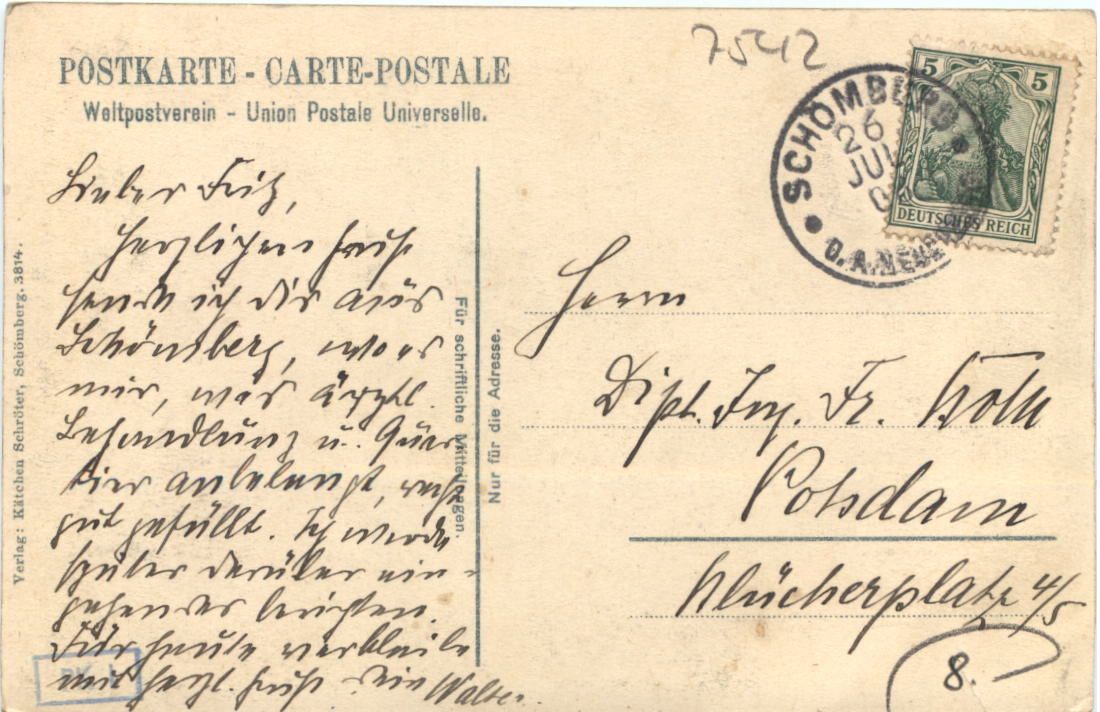 7542
POSTKARTE - CARTE-POSTALE
Weltpostverein - Union Postale Universelle.
5 5
DEUTSCHES REICH
SCHÖMBERG
26
JUL
O.A. NEUEN
Lieber Fritz,
herzlichen Gruß
sende ich dir aus
Schömberg, wo es
mir, was ärztl.
Behandlung u. Quar-
tier anbelangt, recht
gut gefällt. Ich werde
später darüber ein-
gehender berichten.
Für heute verbleibe
mit herzl. Gruß Dein Walter.
Für schriftliche Mitteilungen.
Nur für die Adresse.
Verlag: Kätchen Schröter, Schömberg. 3814.
Herrn
Dipl. Ing. Fr.
Potsdam
Blücherplatz 4/5
8.